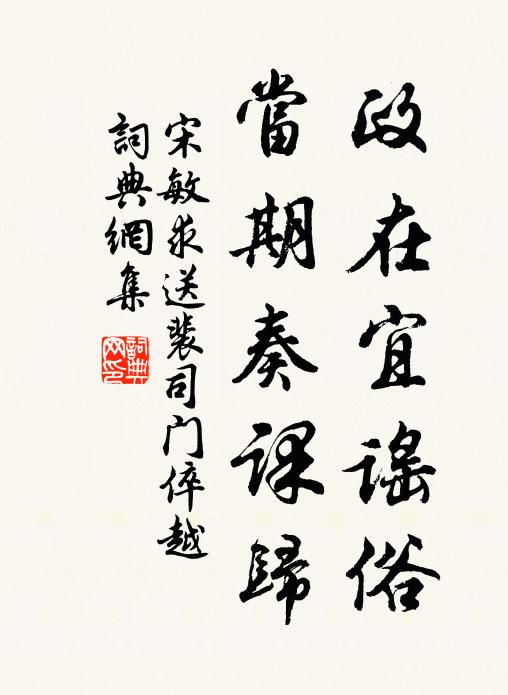 政在宜謠俗
當期奏課歸
宋敏求送裴司門倅越
詞典網集